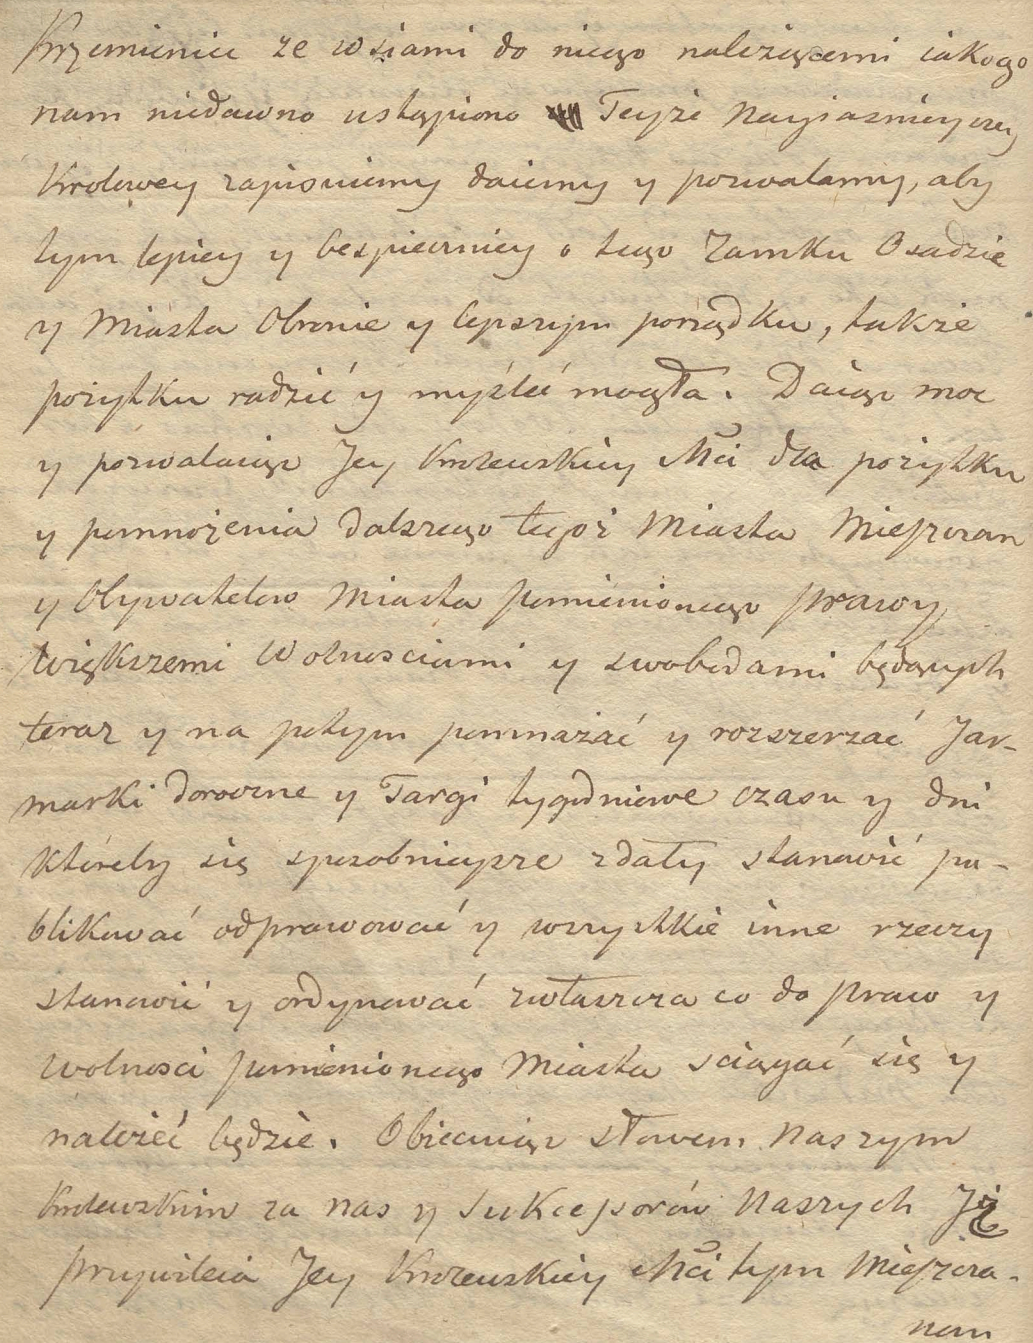 Krzemieniec ze wsiami do niego należącemi iakogo
nam niedawno ustąpiono Teyże Nayiasnieyszey
Krolowey zapisuiemy daiemy y pozwalamy, aby
tym lepiey y bespieczniey o tego Zamku Osadzie
y Miasta Obronie y lepszym porządku, także
pożytku radzić y myśleć mogła. Daiąc moc
y pozwalaiąc Jey Krolewskiey Mci dla pożytku
y pomnożenia dalszego tegoż Miasta Mieszczan
y Obywatelow Miasta pomienionego prawy
większemi Wolnosciami y swobodami będących
teraz y na potym pomnażać y rozszerzać Jar-
marki doroczne y Targi tygodniowe czasu y dni
któreby się sposobnieysze zdały stanowić pu-
blikować odprawować y wszystkie inne rzeczy
stanowić y ordynować zwłaszcza co do praw y
wolnosci pomienionego Miasta sciągać się y
należeć będzie. Obiecuiąc słowem Naszym
Krolewskim za nas y Sukcessorów Naszych Jż
przywileia Jey Krolewskiey Mci tym Mieszcza-
nom